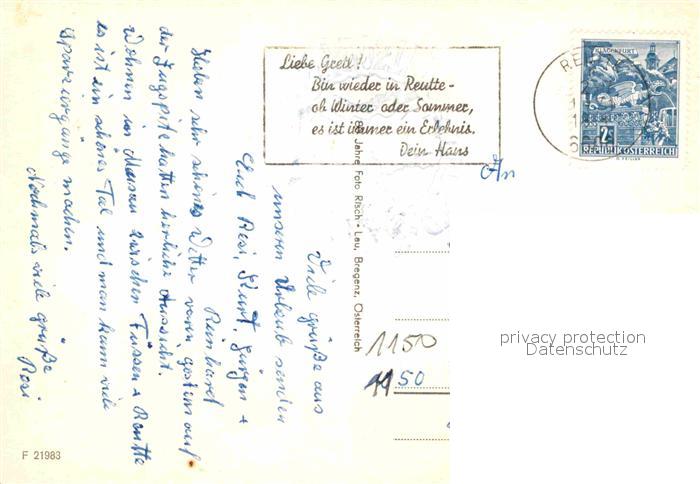 Liebe Gretl!
Bin wieder in Reutte -
ob Winter oder Sommer,
es ist immer ein Erlebnis.
Dein Hans
KLAGENFURT
2S
REPUBLIK ÖSTERREICH
An
Viele Grüße aus
unserem Urlaub senden
Euch Resi, Kurt, Jürgen +
Reinhard
Haben sehr schönes Wetter waren gestern auf
der Zugspitz hatten herrliche Aussicht.
Wohnen in Musau zwischen Füssen + Reutte
es ist ein schönes Tal und man kann viele
Spaziergänge machen.
Nochmals viele Grüße
Resi
Jahre Foto Risch - Lau, Bregenz, Österreich
1150
1150
F 21983
privacy protection
Datenschutz